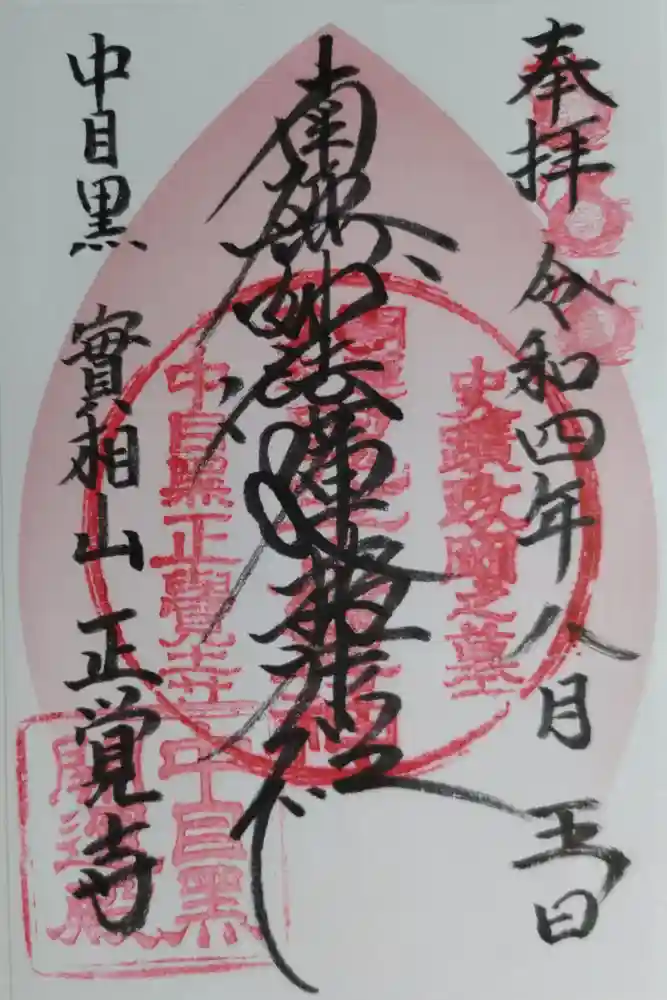 奉拝 令和四年八月五日
南無妙法蓮華経
中目黒 實相山 正覚寺
史蹟政岡之墓
中目黒正覺寺
中目黒